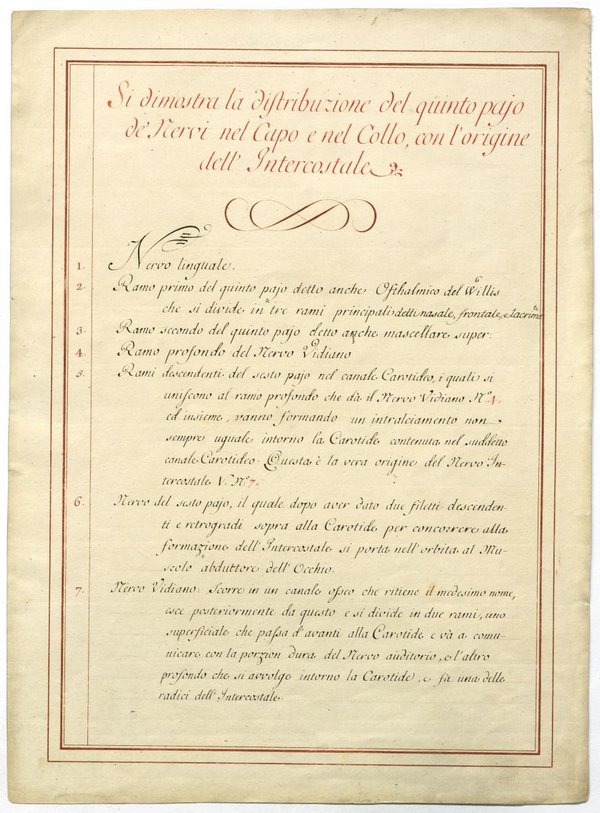 Si dimostra la distribuzione del quinto pajo
de' Nervi nel Capo e nel Collo, con l'origine
dell' Intercostale
1. Nervo linguale.
2. Ramo primo del quinto pajo detto anche Ofthalmico del Willis
che si divide in tre rami principali detti nasale, frontale, e lacrimale
3. Ramo secondo del quinto pajo detto anche mascellare super:
4. Ramo profondo del Nervo Vidiano
5. Rami descendenti del sesto pajo nel canale Carotideo, i quali si
uniscono al ramo profondo che dà il Nervo Vidiano N.º 4.
ed insieme, vanno formando un intralciamento non
sempre uguale intorno la Carotide contenuta nel suddetto
canale Carotideo. Questa è la vera origine del Nervo In-
tercostale V. N.º 7.
6. Nervo del sesto pajo, il quale dopo aver dato due filetti descenden-
ti e retrogradi sopra alla Carotide per concorrere alla
formazione dell'Intercostale si porta nell'orbita al Mu-
scolo abduttore dell'Occhio.
7. Nervo Vidiano: Scorre in un canale osseo che ritiene il medesimo nome,
esce posteriormente da questo e si divide in due rami, uno
superficiale che passa d'avanti alla Carotide e và a comu-
nicare con la porzion dura del Nervo auditorio, e l'altro
profondo che si avvolge intorno la Carotide, e fà una delle
radici dell'Intercostale.